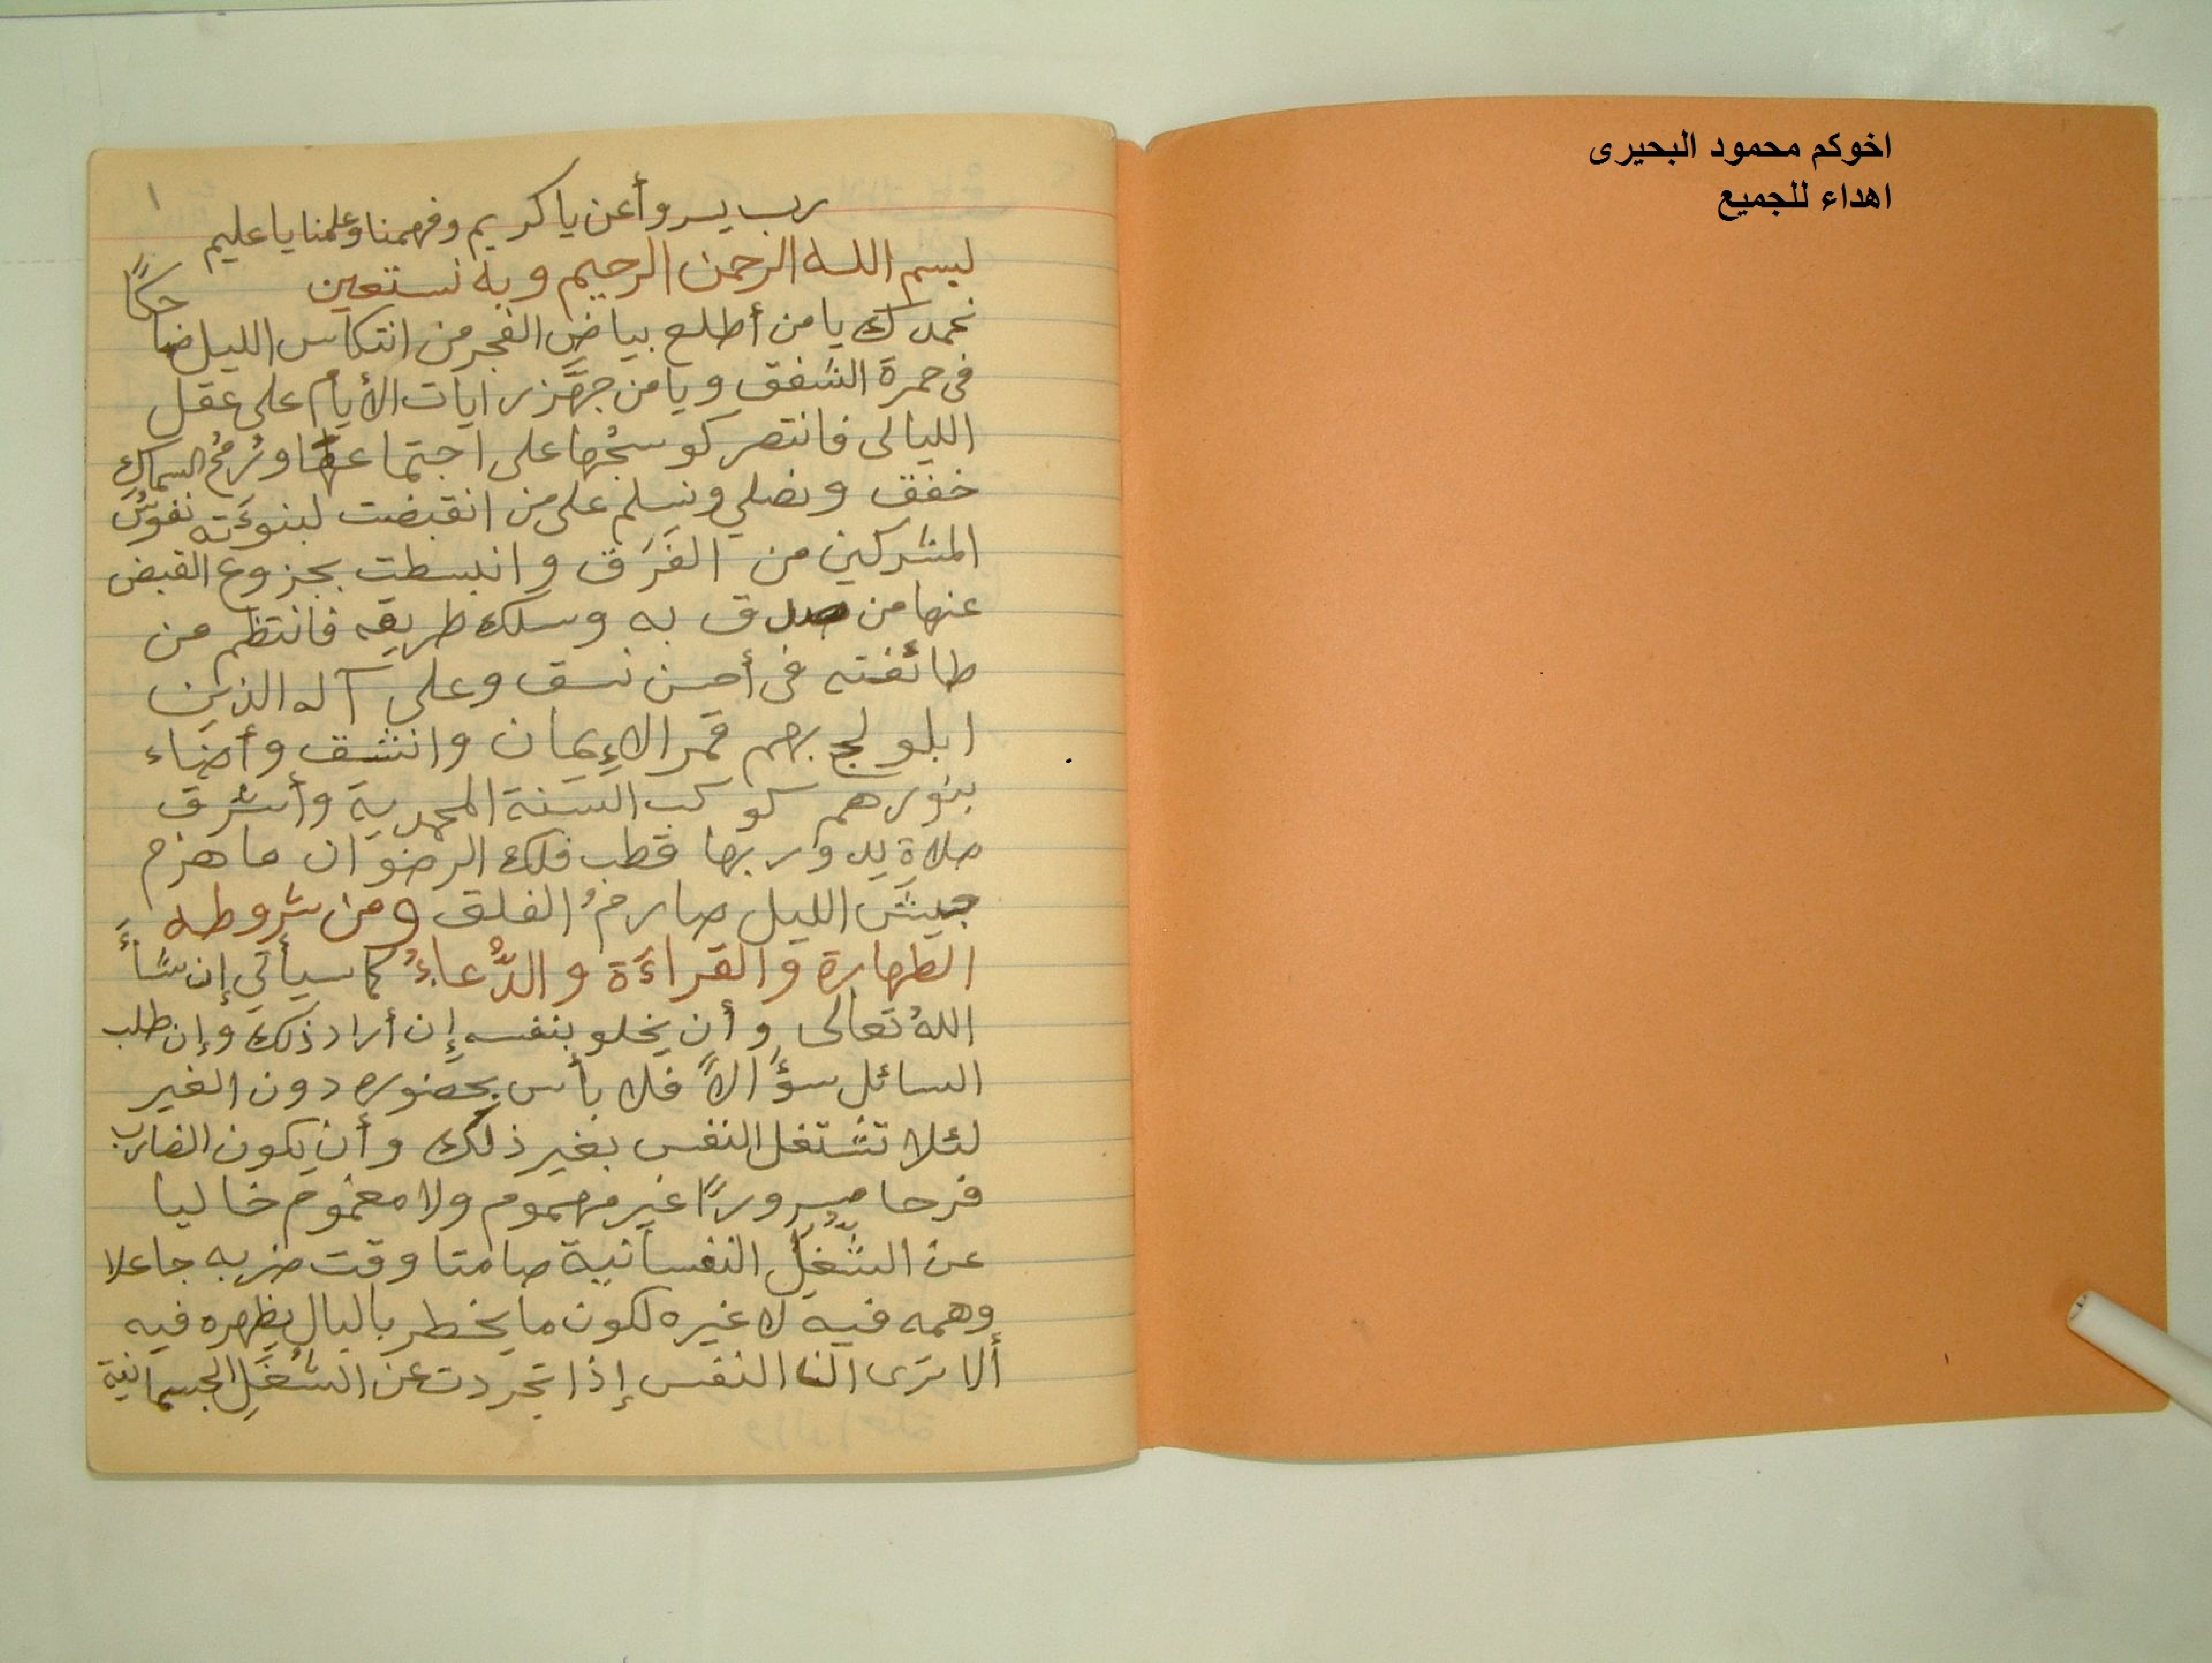 اخوكم محمود البحيرى
اهداء للجميع
١
رب يسر وأعن يا كريم وفهمنا وعلمنا يا عليم
بسم الله الرحمن الرحيم وبه نستعين
نحمدك يا من أطلع بياض الفجر من انتكاس الليل ضاحكًا
فى حمرة الشفق ويا من جهّز رايات الأيام على عقل
الليالى فانتصر كوسجُها على اجتماعها ورُمحُ السماكِ
خفق ونصلي ونسلم على من انقبضت لبنوءَته نفوسُ
المشركين من الفَرَق وانبسطت بجزوع القبض
عنها من صدق به وسلك طريقه فانتظم من
طائفته فى أحسن نسق وعلى آله الذين
ابلولج بهم قمر الإيمان وانشق وأضاء
بنورهم كوكب السنة المحمدية وأشرق
صلاة يدور بها قطب فلك الرضوان ما هزم
جيش الليل صارمُ الفلق ومن شروطه
الطهارة والقراءَة والدُّعاءُ كما سيأتي إن شأَ
اللهُ تعالى وأن يخلو بنفسه إن أراد ذلك وإن طلب
السائل سؤَالاً فلا بأس بحضوره دون الغير
لئلا تشتغل النفس بغير ذلك وأن يكون الضارب
فرحا مسرورًا غير مهموم ولا مغموم خاليا
عن الشُّغْلِ النفسانية صامتا وقت ضربه جاعلا
وهمه فيه لا غيره لكون ما يخطر بالبال يظهره فيه
ألا ترى النفس إذا تجردت عن الشُغَلِ الجسمانية